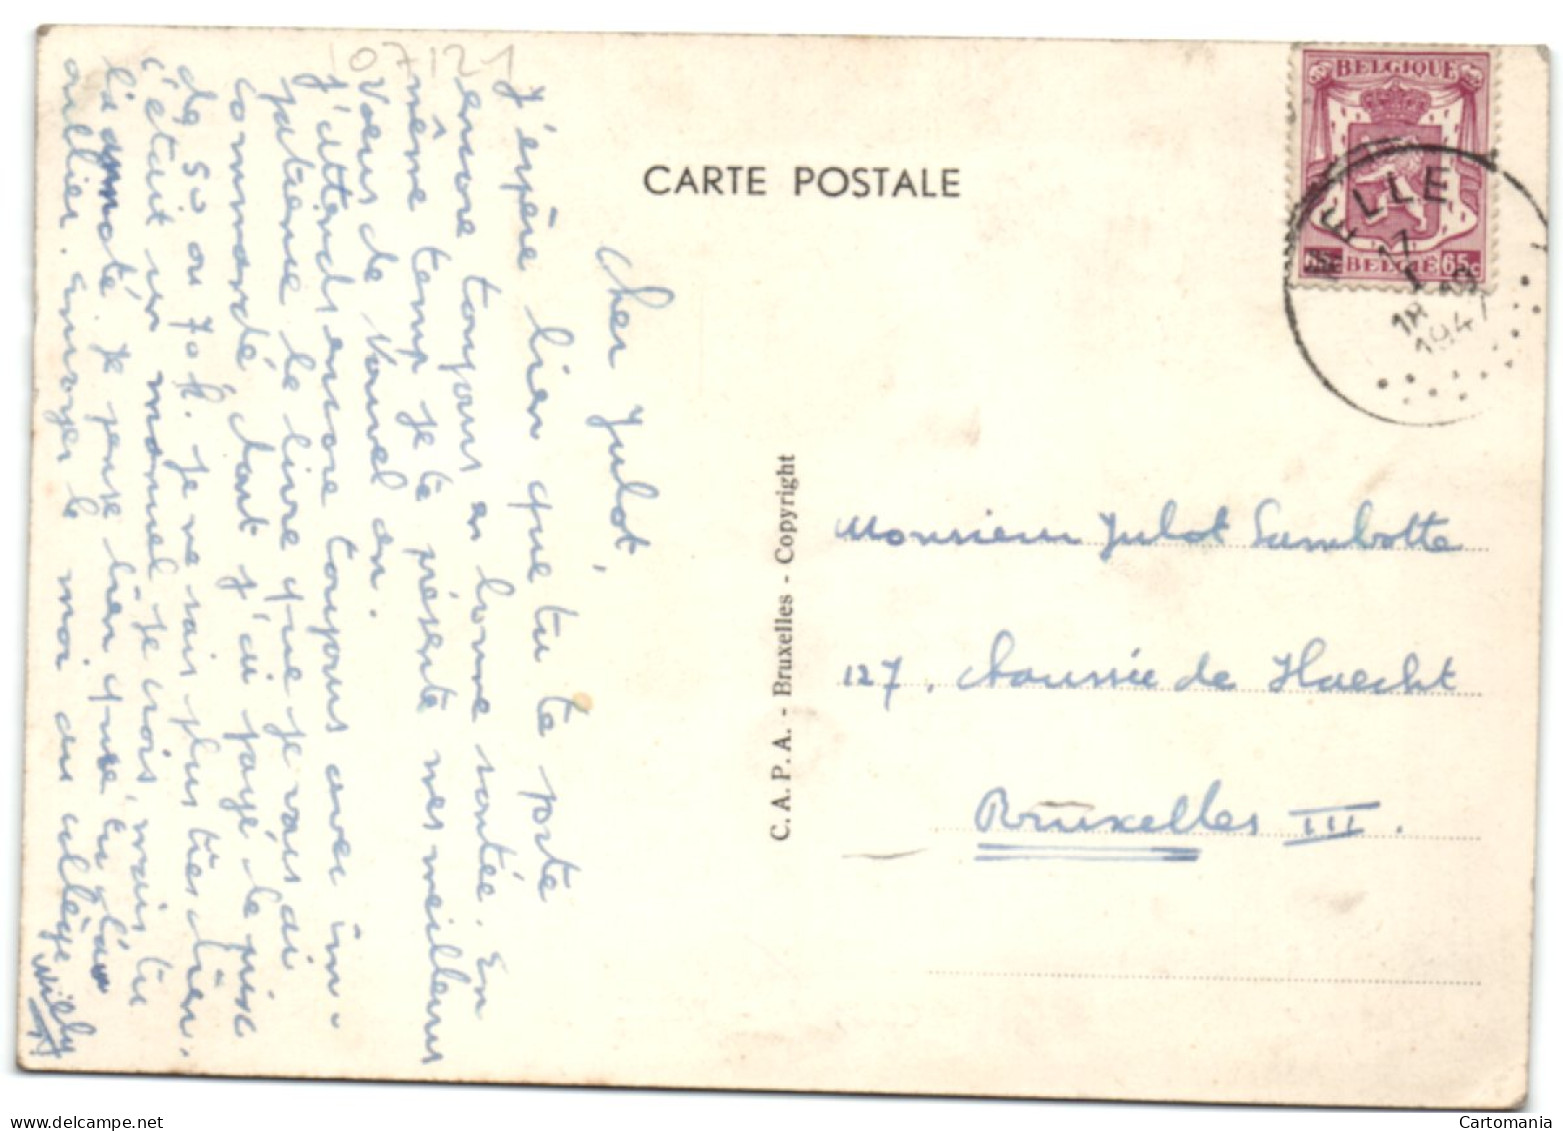 107121
CARTE POSTALE
BELGIQUE
BELGIE 65c
MELLE
17
1
18 - 19
1947
Cher Julot,
J'espère bien que tu te porte
encore toujours en bonne santée. En
même temp je te présente mes meilleurs
Voeus de Nouvel an.
J'attends encore toujours avec im-
patience le livre que je vous ai
commandé dont j'ai payé le prix
de 50 ou 70 fr. je ne sais plus très bien.
c'était un manuel je crois, mais tu
l'a noté. je pense bien que tu l'au
oublier. envoyer le moi au collège
Willy
C. A. P. A. - Bruxelles - Copyright
Monsieur Julot Lambotte
127, chaussée de Haecht
Bruxelles III.
Cartomania
delcampe.net